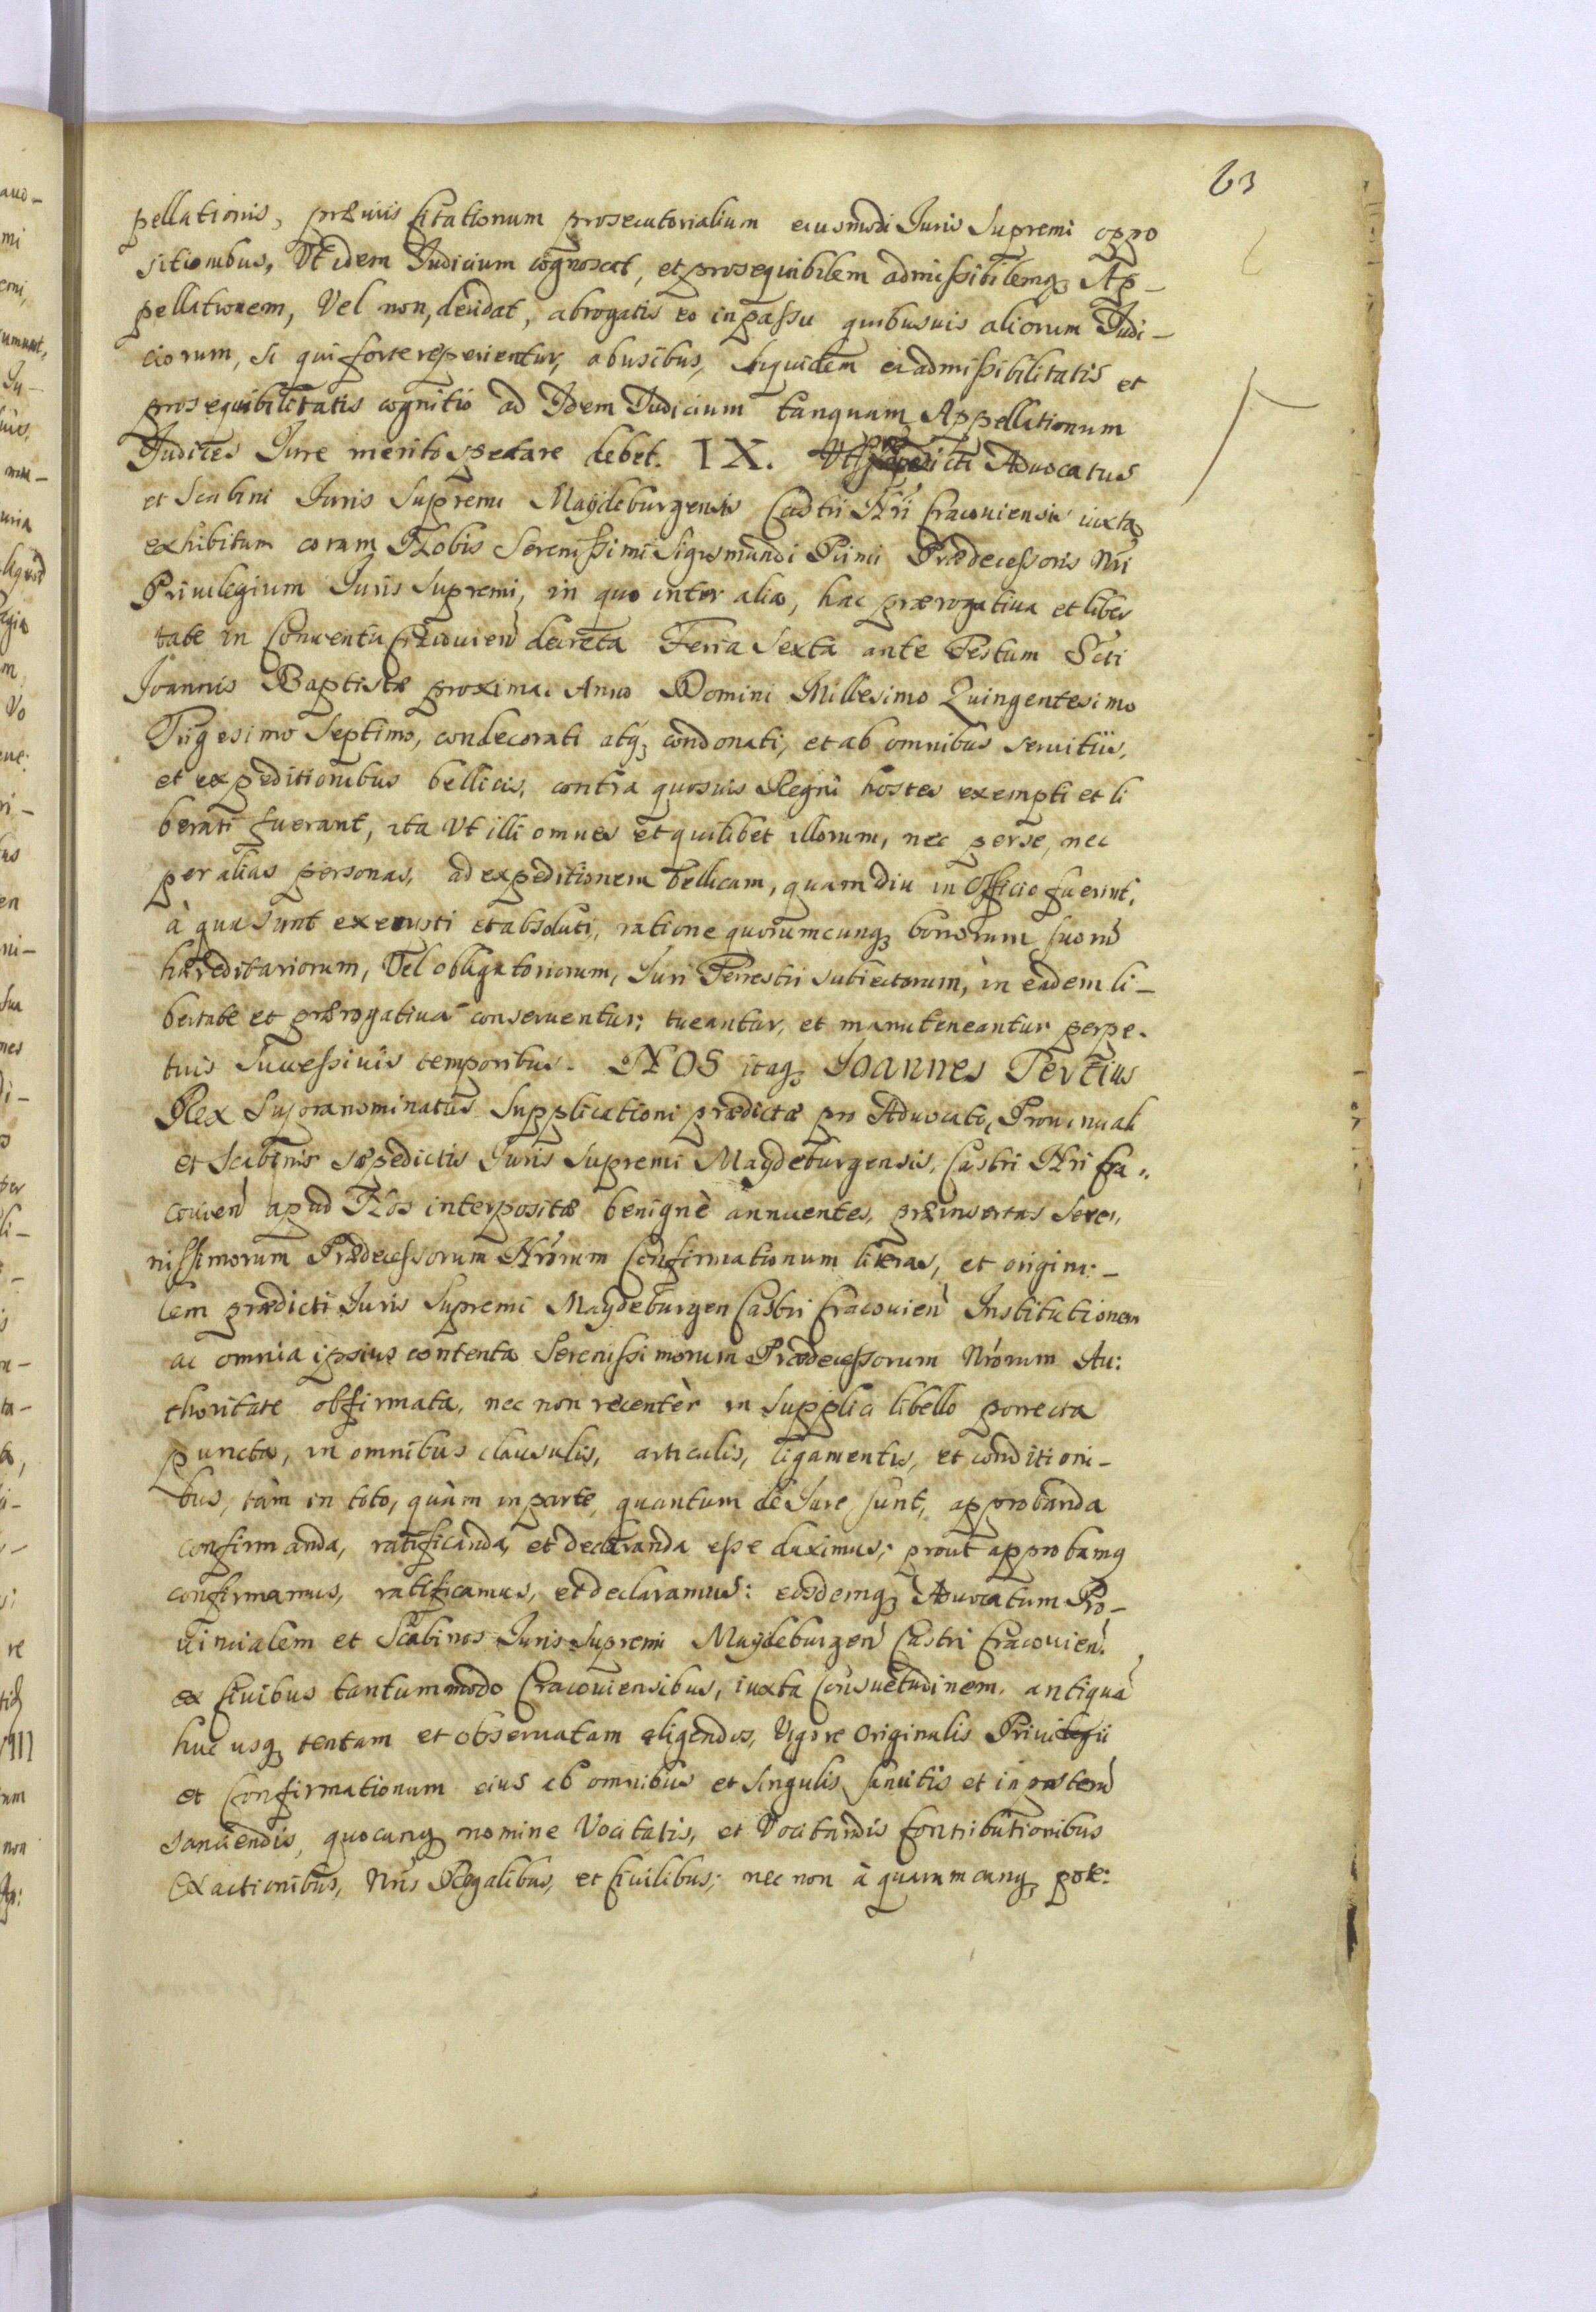 63
pellationis, præuiis Citationum prosecutorialium eiusmodi Iuris Supremi oppo
sitionibus, Vt idem Iudicium cognoscat, et prosequibilem admissibilemq; Ap-
pellationem, Vel non, decidat, abrogatis eo in passu quibusuis aliorum Iudi-
ciorum, si qui forte reperientur, abusibus, siquidem ei admissibilitatis et
prosequibilitatis cognitio ad Idem Iudicium tanquam Appellationum
Iudices Iure merito spectare debet. IX. Vt Advocatus
et Scabini Iuris Supremi Magdeburgensis Castri Nri Cracouiensis iuxta
exhibitum coram Nobis Serenissimi Sigismundi Primi Prædecessoris Nri
Priuilegium Iuris Supremi, in quo inter alia, hac prærogatiua et liber
tate in Conuentu Cracouien decreta Feria Sexta ante Festum Scti
Joannis Baptistæ proxima. Anno Domini Millesimo Quingentesimo
Trigesimo Septimo, condecorati atq; condonati, et ab omnibus seruitiis,
et expeditionibus bellicis, contra quosuis Regni hostes exempti et li
berati fuerant, ita Vt illi omnes et quilibet illorum, nec per se, nec
per alias personas, ad expeditionem bellicam, quamdiu in Officio fuerint,
à qua sunt exempti et absoluti, ratione quorumcunq; bonorum suorū
hæreditariorum, Vel obligatoriorum, Iuri Terrestri subiectorum, in eadem li-
bertate et prærogatiua conseruentur, tueantur, et manuteneantur perpe-
tuis Successiuis temporibus. NOS itaq; Joannes Tertius
Rex Supranominatus Supplicationi prædictæ pro Aduocato, Prouinciali
et Scabinis sæpedictis Iuris Supremi Magdeburgensis, Castri Nri Cra-
couien apud Nos interpositæ benignè annuentes, præinsertas Sere-
nissimorum Prædecessorum Nrorum Confirmationum literas, et origina:-
lem prædicti Iuris Supremi Magdeburgen Castri Cracouien Institutionem
ac omnia ipsius contenta Serenissimorum Prædecessorum Nrorum Au:
thoritate obfirmata, nec non recentèr in Supplici libello porrecta
puncta, in omnibus clausulis, articulis, ligamentis, et conditioni-
bus, tàm in toto, quàm in parte, quantum de Iure sunt, approbanda
confirmanda, ratificanda, et declaranda esse duximus; prout approbamq
confirmamus, ratificamus, et declaramus: eosdemq; Aduocatum Pro-
uincialem et Scabinos Iuris Supremi Magdeburgen Castri Cracouien.
ex Ciuibus tantummodo Cracouiensibus, iuxta Consuetudinem, antiquā
huc usq; tentam et obseruatam eligendos, Vigore Originalis Priuilegii
et Confirmationum eius ab omnibus et singulis sancitis et in posterū
sanciendis, quocunq; nomine Vocitatis, et Vocitandis Contributionibus
Exactionibus, Nris Regalibus, et Ciuilibus; nec non à quarumcunq; pote: